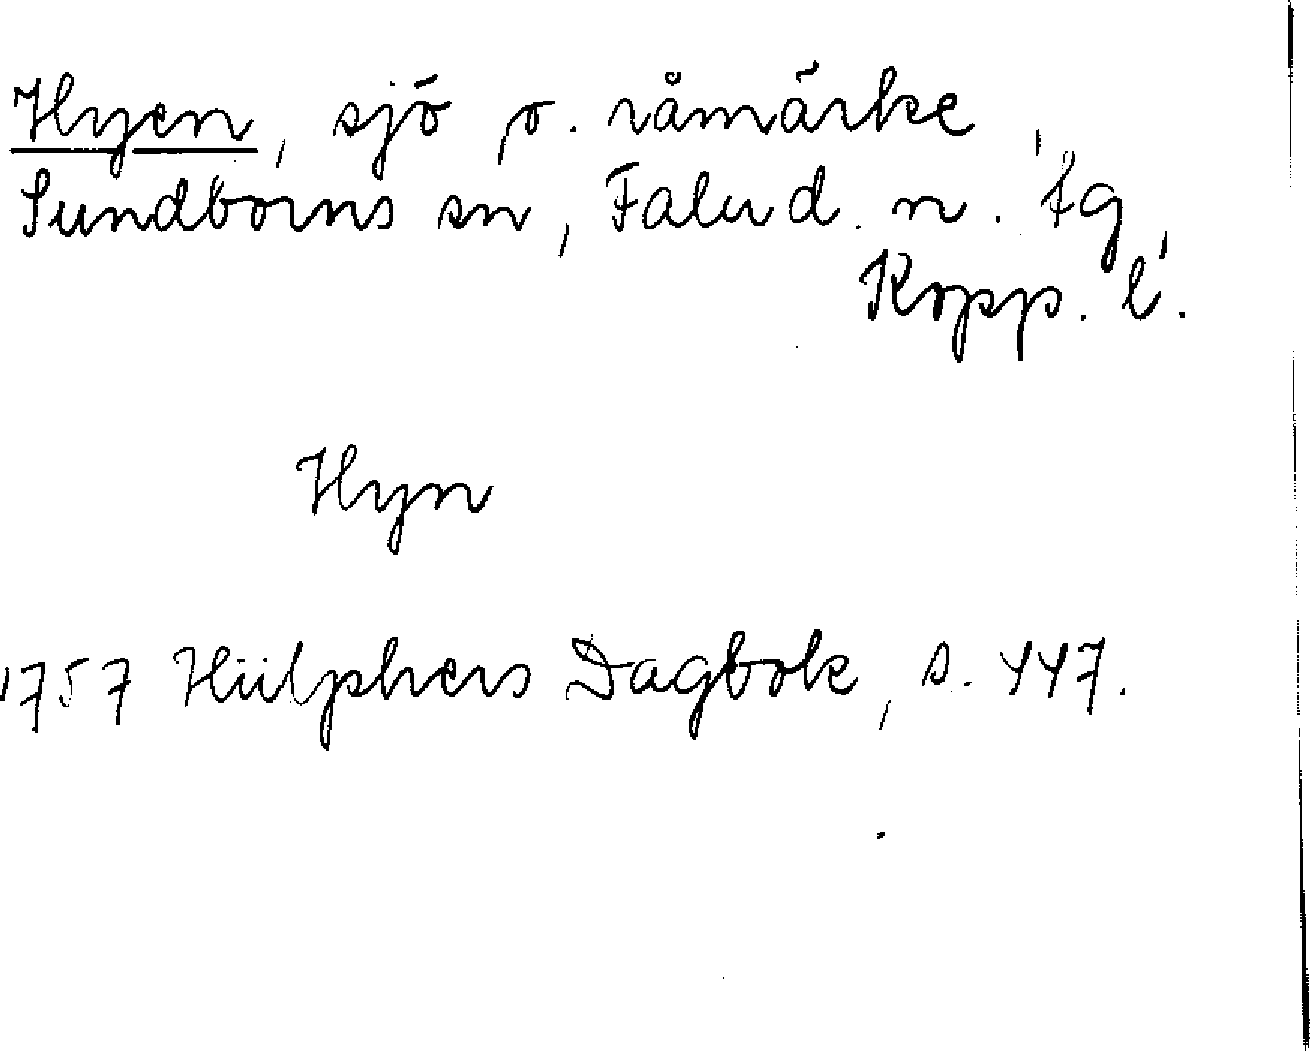 Hyen, sjö o. råmärke,
Sundborns sn, Falu d. n. tg,
Kopp. l.
Hyn
1757 Hülphers Dagbok, s. 447.